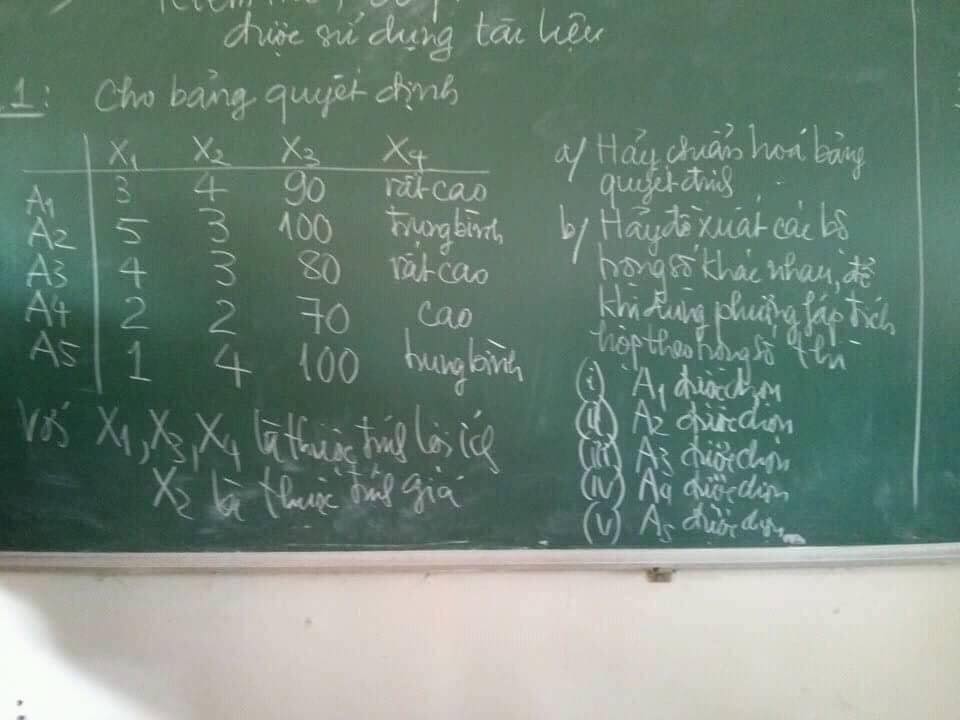 được sử dụng tài liệu
1: Cho bảng quyết định
X1 X2 X3 X4
A1 3 4 90 rất cao
A2 5 3 100 trung bình
A3 4 3 80 rất cao
A4 2 2 70 cao
A5 1 4 100 trung bình
Với X1, X3, X4 là thuộc tính lợi ích
X2 là thuộc tính giá
a/ Hãy chuẩn hoá bảng
quyết định
b/ Hãy đề xuất các bộ
trọng số khác nhau, để
khi dùng phương pháp tích
hợp theo trọng số thì
(i) A1 được chọn
(ii) A2 được chọn
(iii) A3 được chọn
(iv) A4 được chọn
(v) A5 được chọn